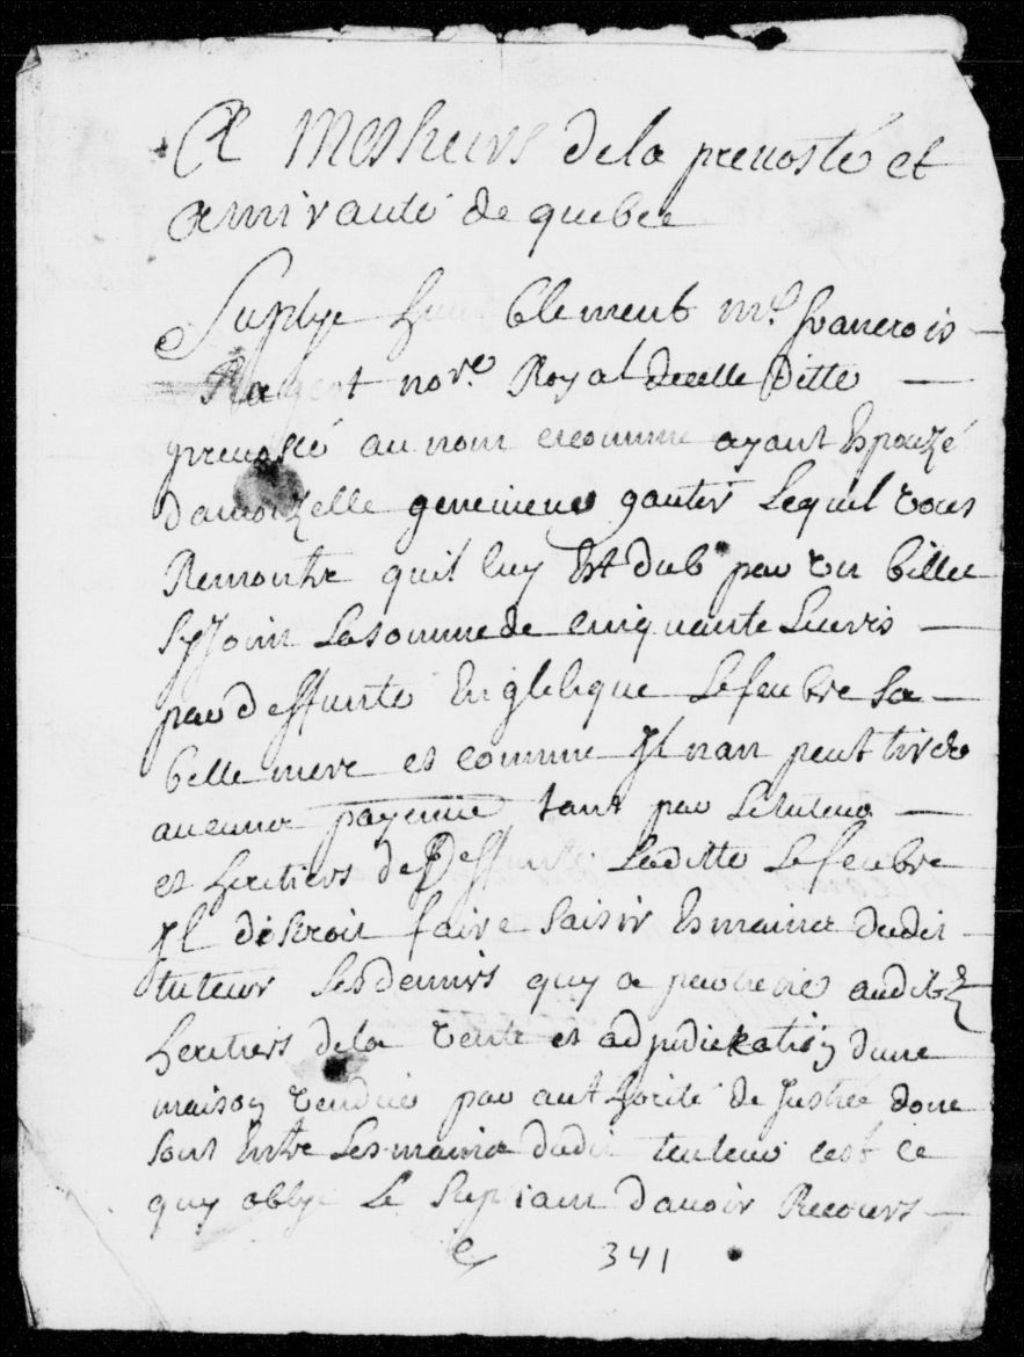 A Messieurs de la prevosté et
Amirauté de quebec
Suplye humblement me. francois
Rageot nore. Royal de celle ditte
prevosté au nom et comme ayant Espouzé
damoizelle genevieve gautier Lequel vous
Remontre quil luy Est dub par un billet
Sy Join La somme de cinquante Livres
par deffunte Englelique Lefeubvre sa
belle mere et comme Jl nan peut tirer
aucune payemen tant par Le tuteur
et heritiers de Deffunte Laditte Lefeubvre
Jl désiroit faire saisir Es mains dudit
tuteur Les deniers quy a parviené audits
heritiers de la vente et adjudickation dune
maison vendue par authorité de Justice donc
sont Entre Les mains dudit tuteur cest ce
quy oblige Le Supliant d'avoir Recours
341